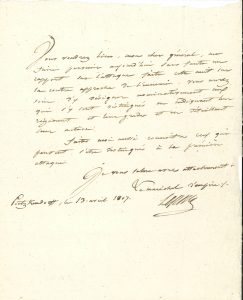 Vous voudrez bien, mon cher général, me
faire parvenir aujourd'hui dans l'autre un
rapport sur l'attaque faite cette nuit sur
la contre approche de l'ennemi. vous aurez
soin d'y désigner nominativement ceux
qui s'y sont distingués en indiquant leur
régiment et leur grade et en détaillant
leur action.
Faites moi aussi connaître ceux qui
peuvent s'être distingués à la première
attaque
Je vous salue avec attachement
Le maréchal d'empire
le 13 avril 1807.